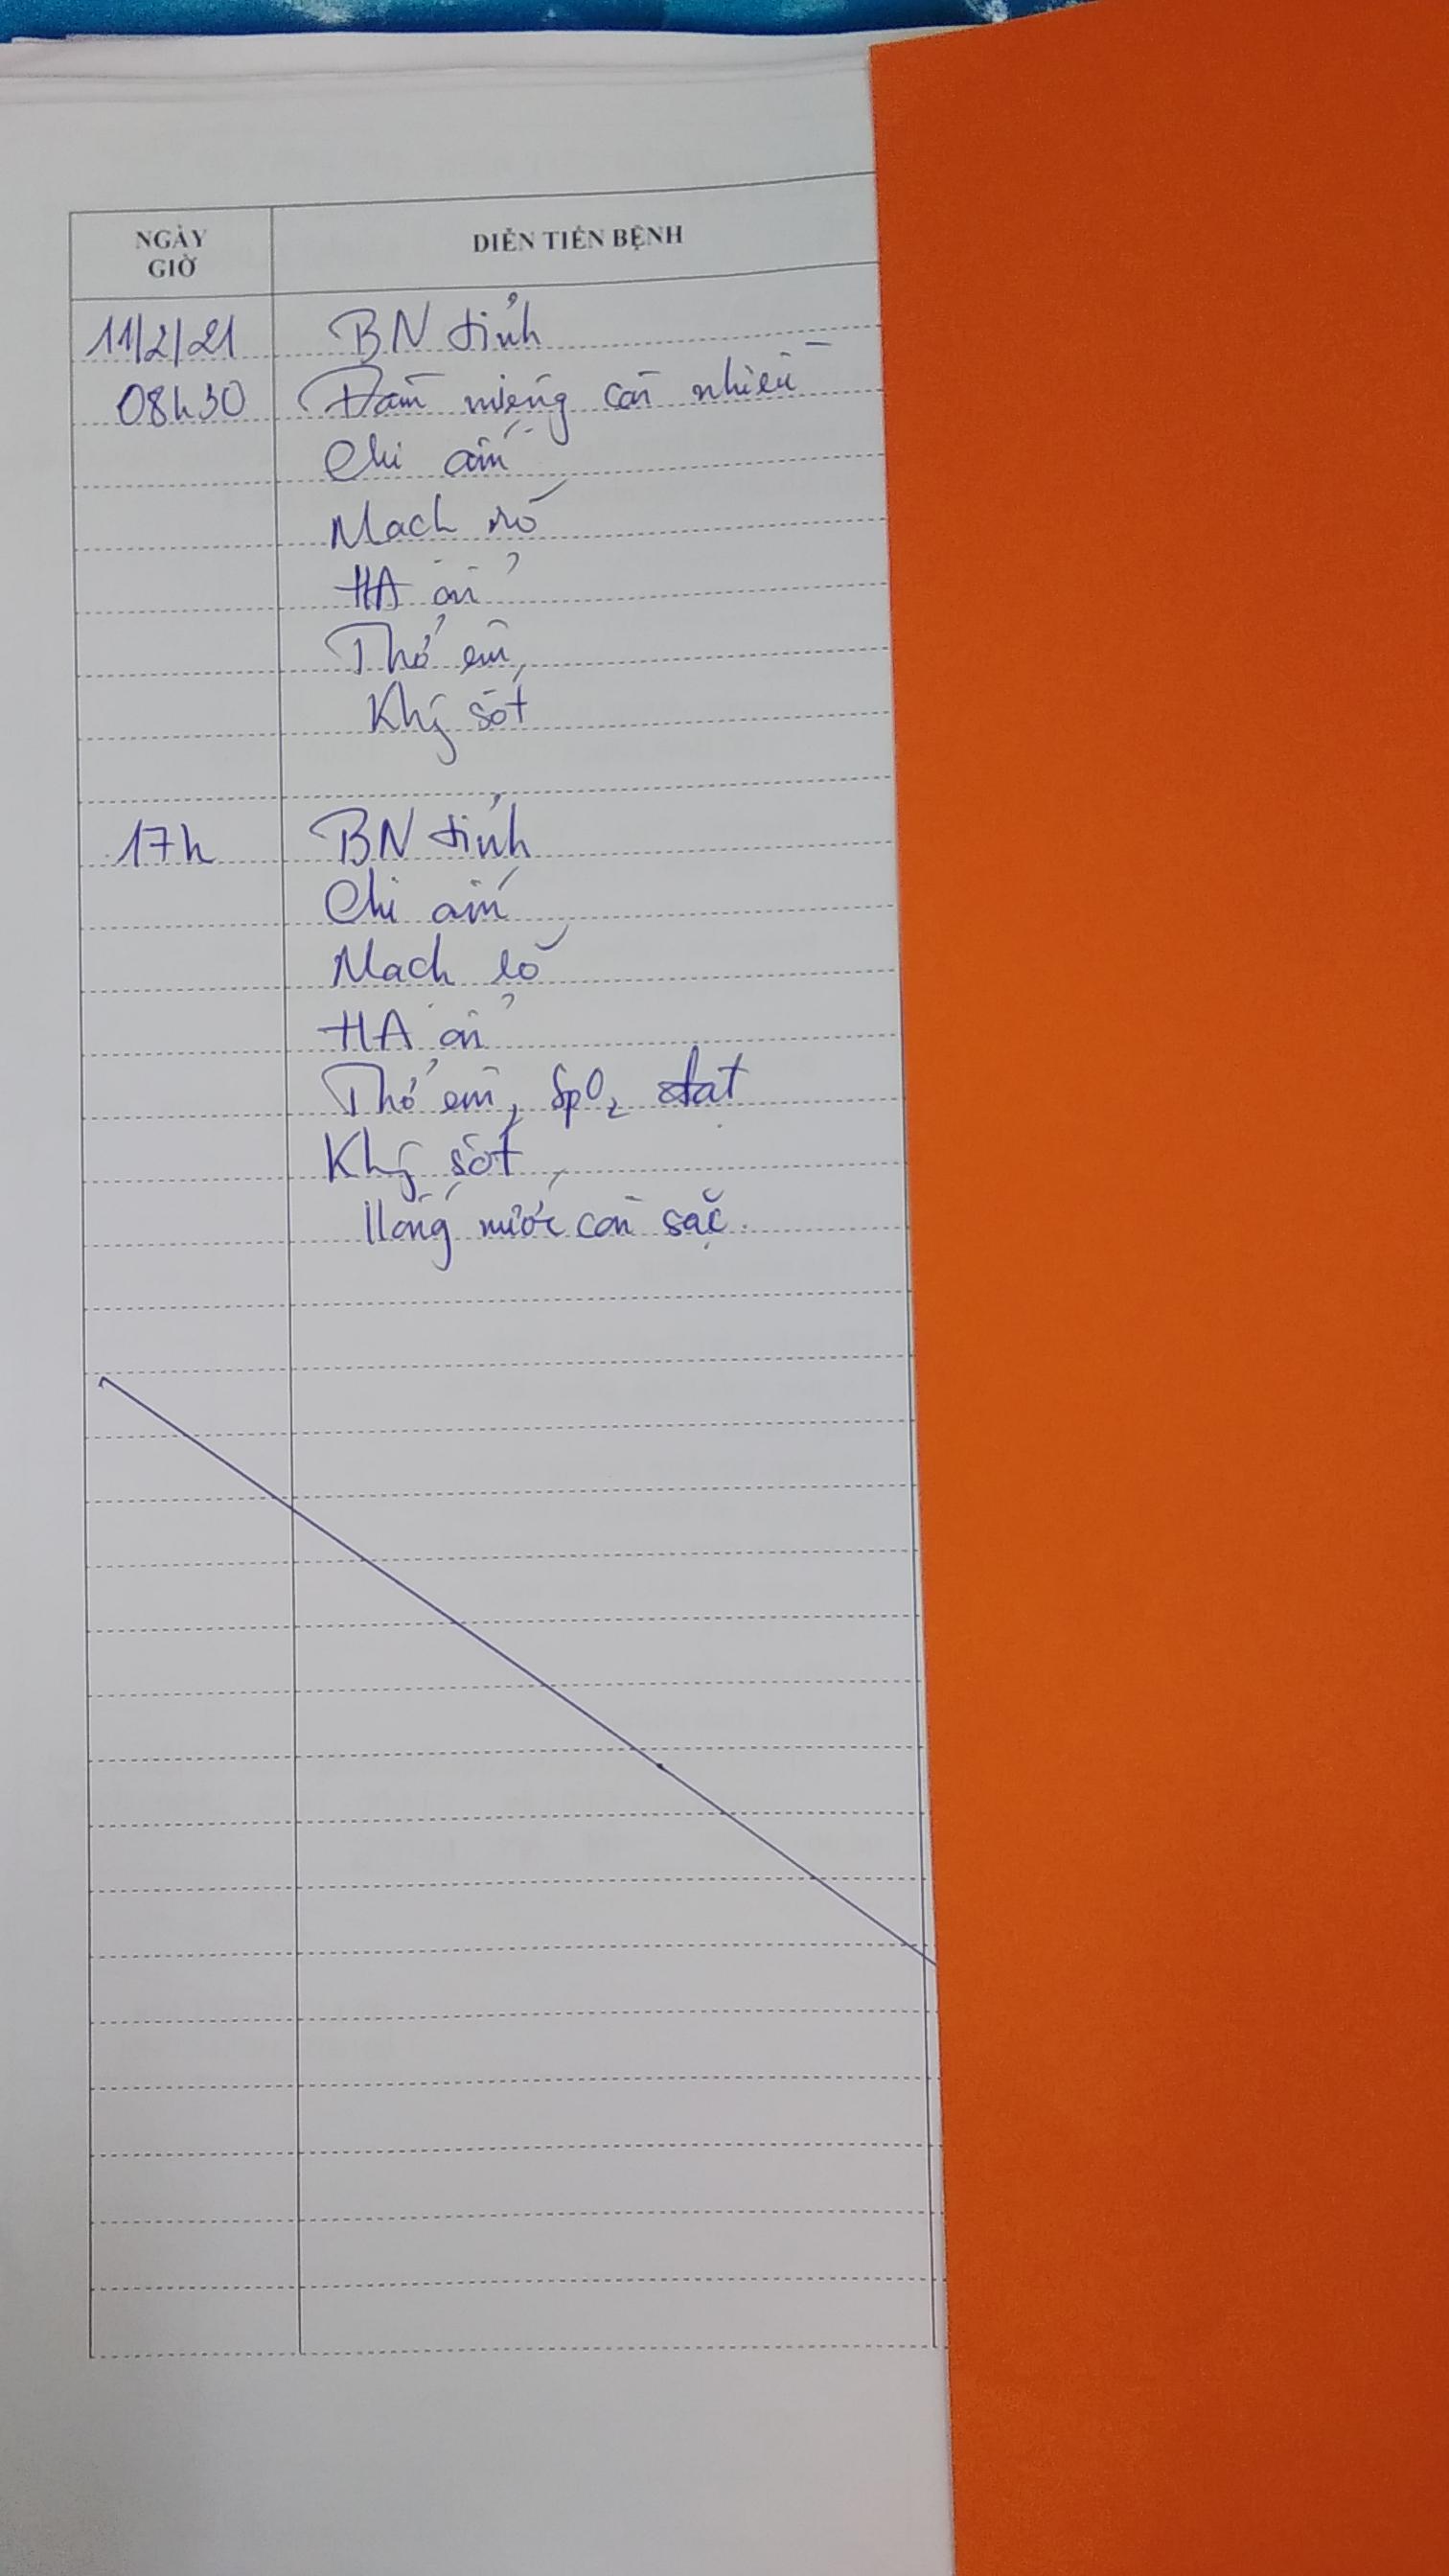 NGÀY
GIỜ
DIỄN TIẾN BỆNH
11/2/21 BN tỉnh
08h30 Đàm miệng còn nhiều
Chi ấm
Mạch rõ
HA ổn
Thở êm,
Khg sốt
17h BN tỉnh
Chi ấm
Mạch rõ
HA ổn
Thở êm, SpO₂ đạt
Khg sốt,
Uống nước còn sặc.